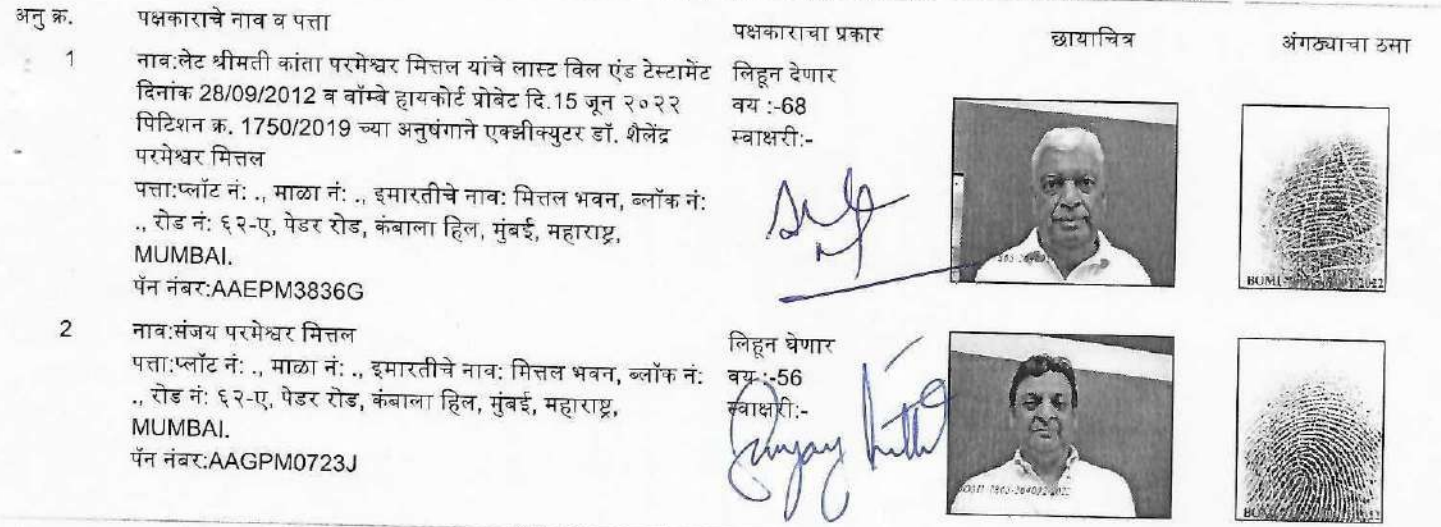 अनु क्र. पक्षकाराचे नाव व पत्ता पक्षकाराचा प्रकार छायाचित्र अंगठ्याचा ठसा
1 नाव:लेट श्रीमती कांता परमेश्वर मित्तल यांचे लास्ट विल एंड टेस्टामेंट
दिनांक 28/09/2012 व बॉम्बे हायकोर्ट प्रोबेट दि.15 जून २०२२
पिटिशन क्र. 1750/2019 च्या अनुषंगाने एक्झीक्युटर डॉ. शैलेंद्र
परमेश्वर मित्तल
पत्ता:प्लॉट नं: ., माळा नं: ., इमारतीचे नाव: मित्तल भवन, ब्लॉक नं:
., रोड नं: ६२-ए, पेडर रोड, कंबाला हिल, मुंबई, महाराष्ट्र,
MUMBAI.
पॅन नंबर:AAEPM3836G
लिहून देणार
वय :-68
स्वाक्षरी:-
2 नाव:संजय परमेश्वर मित्तल
पत्ता:प्लॉट नं: ., माळा नं: ., इमारतीचे नाव: मित्तल भवन, ब्लॉक नं:
., रोड नं: ६२-ए, पेडर रोड, कंबाला हिल, मुंबई, महाराष्ट्र,
MUMBAI.
पॅन नंबर:AAGPM0723J
लिहून घेणार
वय :-56
स्वाक्षरी:-
Sanjay Mittal